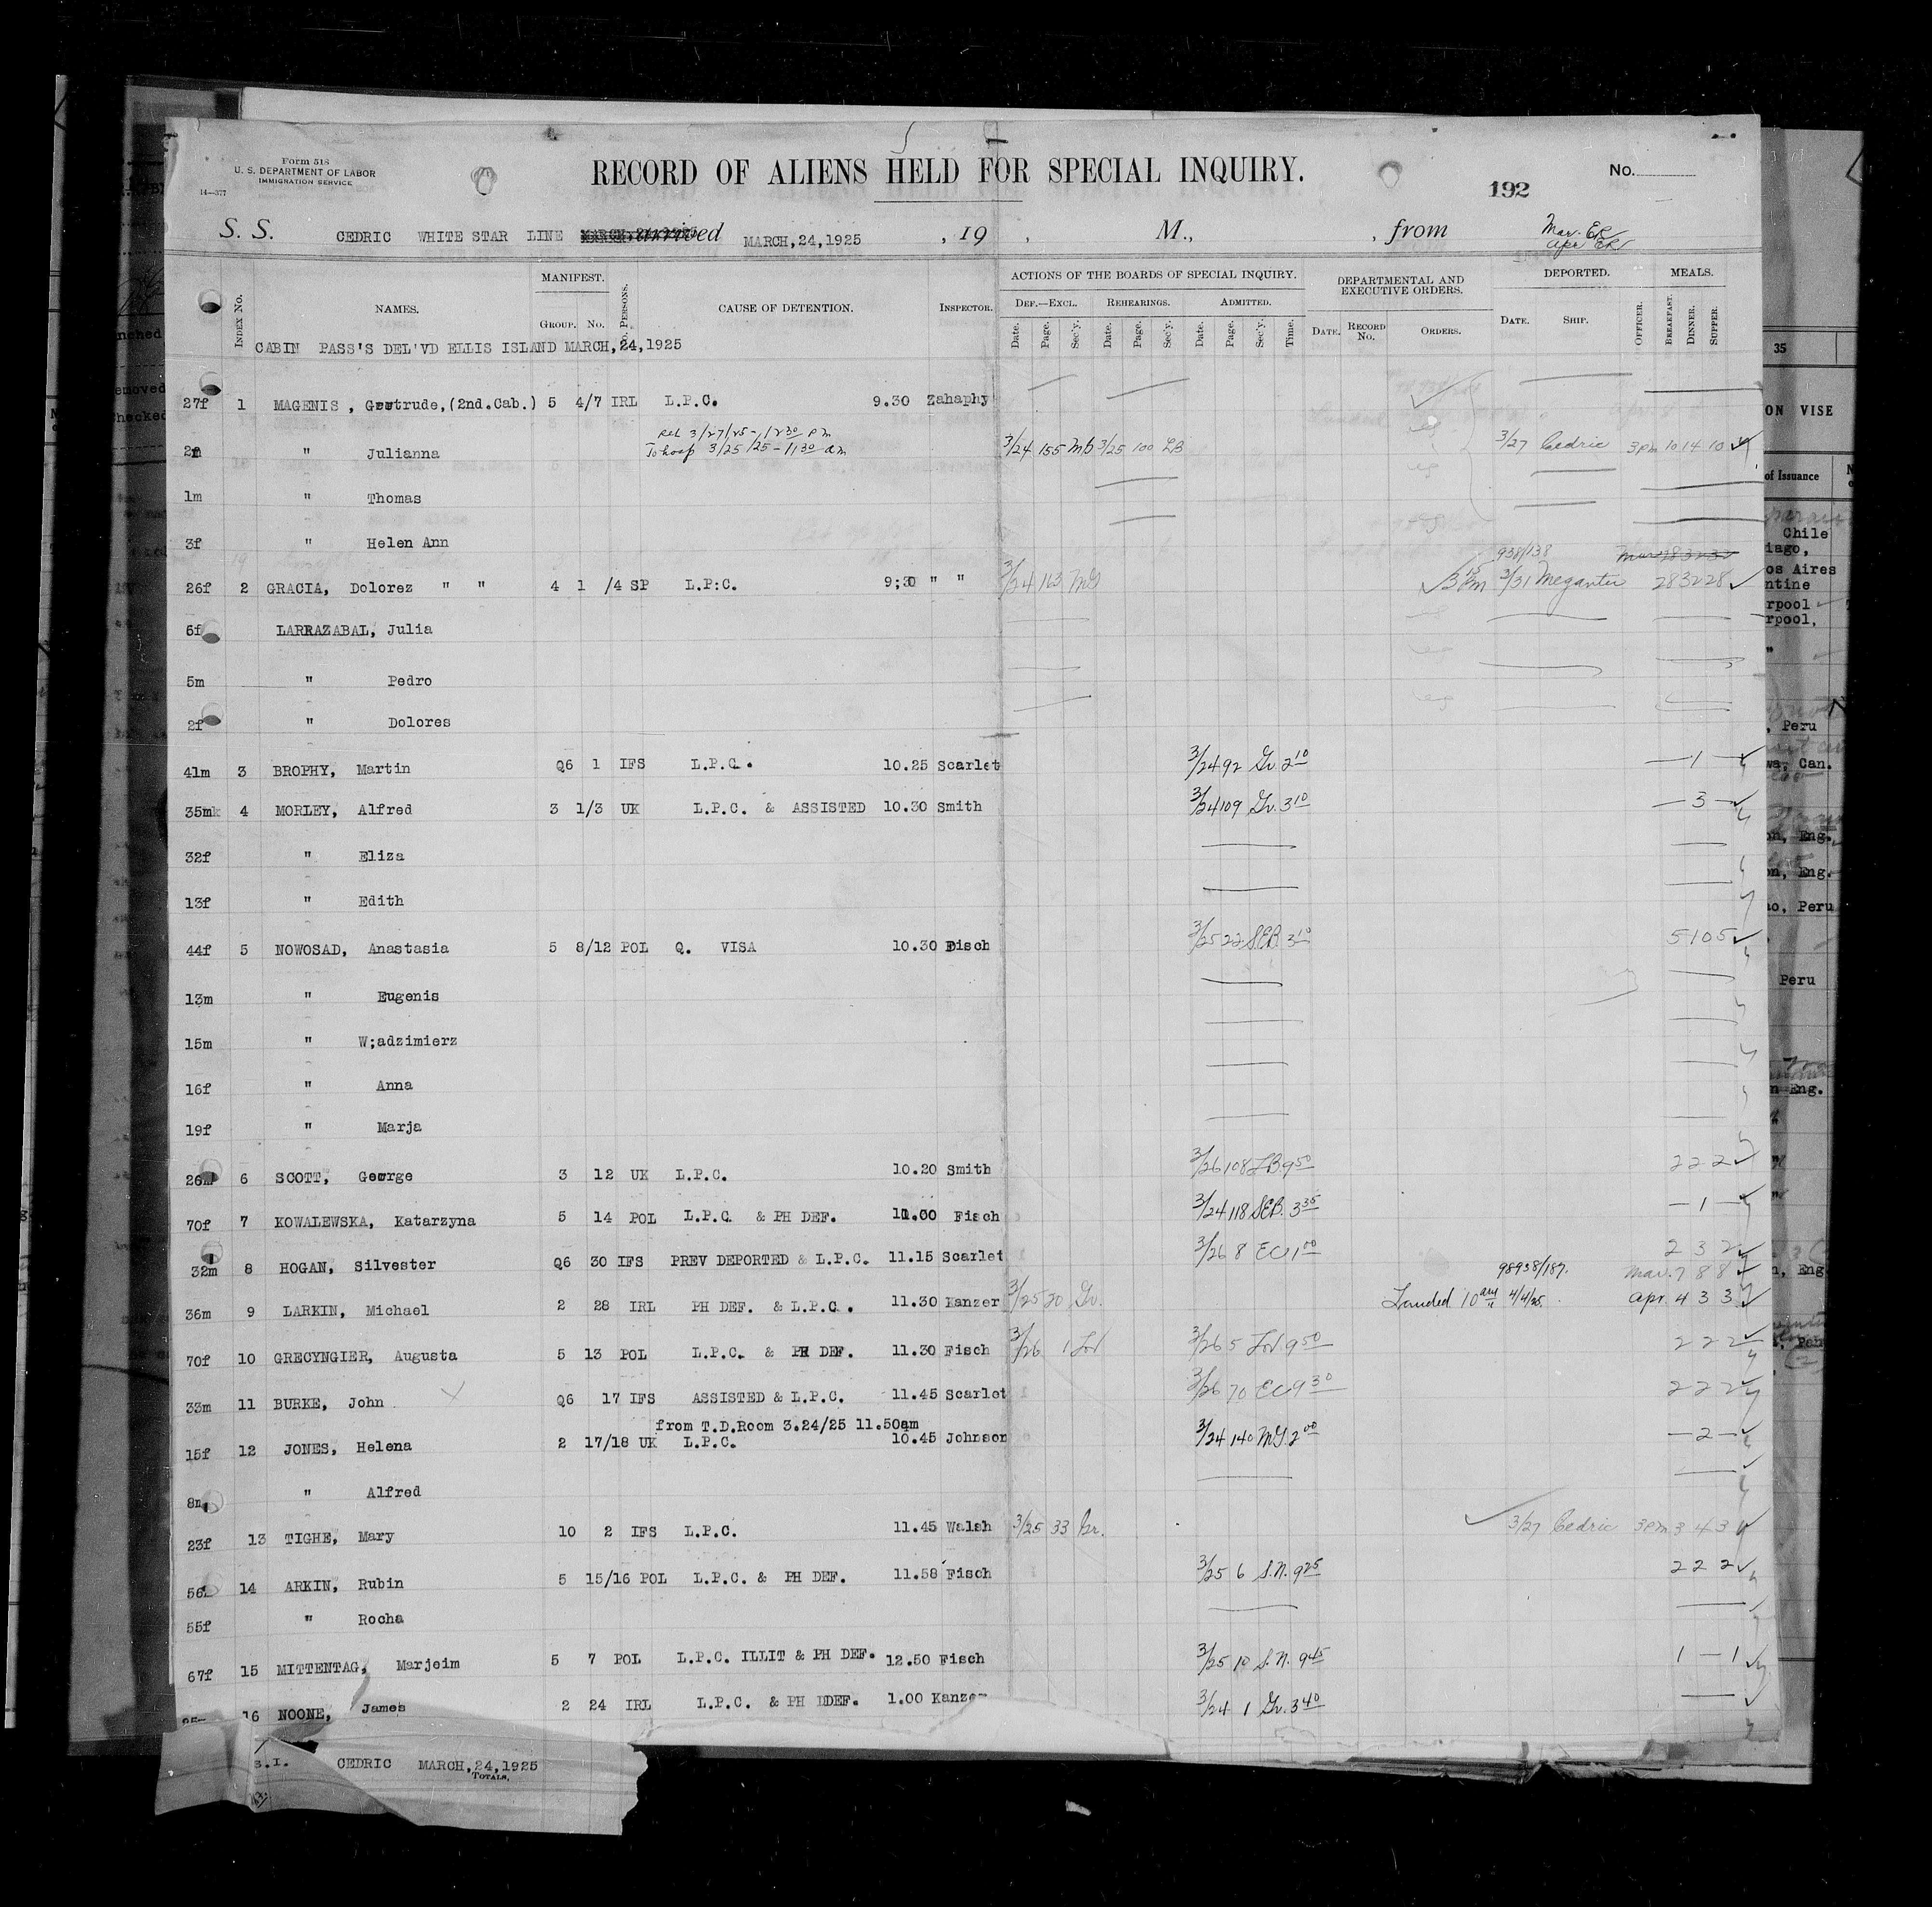 Form 518
U. S. DEPARTMENT OF LABOR
IMMIGRATION SERVICE
14—377
RECORD OF ALIENS HELD FOR SPECIAL INQUIRY.
192
No.
S. S. CEDRIC WHITE STAR LINE arrived MARCH,24,1925 , 19 , M., , from
Mar. ER
Apr ER
INDEX No. NAMES. MANIFEST. GROUP. No. PERSONS. CAUSE OF DETENTION. INSPECTOR.
ACTIONS OF THE BOARDS OF SPECIAL INQUIRY. DEF.—EXCL. REHEARINGS. ADMITTED.
Date. Page. Sec'y. Date. Page. Sec'y. Date. Page. Sec'y. Time.
DEPARTMENTAL AND EXECUTIVE ORDERS. DATE. RECORD No. ORDERS.
DEPORTED. DATE. SHIP. OFFICER. MEALS. BREAKFAST. DINNER. SUPPER.
CABIN PASS'S DEL'VD ELLIS ISLAND MARCH,24,1925
27f 1 MAGENIS , Gertrude,(2nd.Cab.) 5 4/7 IRL L.P.C. 9.30 Zahaphy
Rel 3/27/25 - 1230 Pm
2f " Julianna To hosp 3/25/25 - 1130 am 3/24 155 Mb 3/25 100 LB 3/27 Cedric 3pm 10 14 10
1m " Thomas
3f " Helen Ann
938/138
26f 2 GRACIA, Dolorez " " 4 1 /4 SP L.P:C. 9;30 " " 3/24 113 MG 3/31 Megantic 28 32 28
6f LARRAZABAL, Julia
5m " Pedro
2f " Dolores
41m 3 BROPHY, Martin Q6 1 IFS L.P.C. 10.25 Scarlet 3/24 92 Gv. 2 10 — 1 —
35m 4 MORLEY, Alfred 3 1/3 UK L.P.C. & ASSISTED 10.30 Smith 3/24 109 Gv. 3 10 — 3 —
32f " Eliza
13f " Edith
44f 5 NOWOSAD, Anastasia 5 8/12 POL Q. VISA 10.30 Fisch 3/25 22 SEB. 3 10 5 10 5
13m " Eugenis
15m " W;adzimierz
16f " Anna
19f " Marja
26m 6 SCOTT, George 3 12 UK L.P.C. 10.20 Smith 3/26 108 LB. 9 50 2 2 2
70f 7 KOWALEWSKA, Katarzyna 5 14 POL L.P.C. & PH DEF. 11.00 Fisch 3/24 118 SEB. 3 35 — 1 —
32m 8 HOGAN, Silvester Q6 30 IFS PREV DEPORTED & L.P.C. 11.15 Scarlet 3/26 8 EC 1 00 2 3 2
98938/187. Mar. 7 8 8
36m 9 LARKIN, Michael 2 28 IRL PH DEF. & L.P.C. 11.30 Kanzer 3/25 20 Gv. Landed 10 am 4/4/25. Apr. 4 3 3
70f 10 GRECYNGIER, Augusta 5 13 POL L.P.C. & PH DEF. 11.30 Fisch 3/26 1 3/26 5 9 50 2 2 2
33m 11 BURKE, John Q6 17 IFS ASSISTED & L.P.C. 11.45 Scarlet 3/26 70 EC 9 30 2 2 2
from T.D.Room 3.24/25 11.50am
15f 12 JONES, Helena 2 17/18 UK L.P.C. 10.45 Johnson 3/24 140 MG. 2 00 — 2 —
8m " Alfred
23f 13 TIGHE, Mary 10 2 IFS L.P.C. 11.45 Walsh 3/25 33 Gr. 3/27 Cedric 3pm 3 4 3
56 14 ARKIN, Rubin 5 15/16 POL L.P.C. & PH DEF. 11.58 Fisch 3/25 6 S.N. 9 25 2 2 2
55f " Rocha
67f 15 MITTENTAG, Marjeim 5 7 POL L.P.C. ILLIT & PH DEF. 12.50 Fisch 3/25 10 S.N. 9 45 1 — 1
16 NOONE, James 2 24 IRL L.P.C. & PH DDEF. 1.00 Kanzer 3/24 1 Gv. 3 40
S.I. CEDRIC MARCH,24,1925
TOTALS,
35
ON VISE
of Issuance
Chile
iago,
os Aires
ntine
rpool
rpool,
, Peru
wa, Can.
on, Eng.
on, Eng.
ao, Peru
Peru
n Eng.